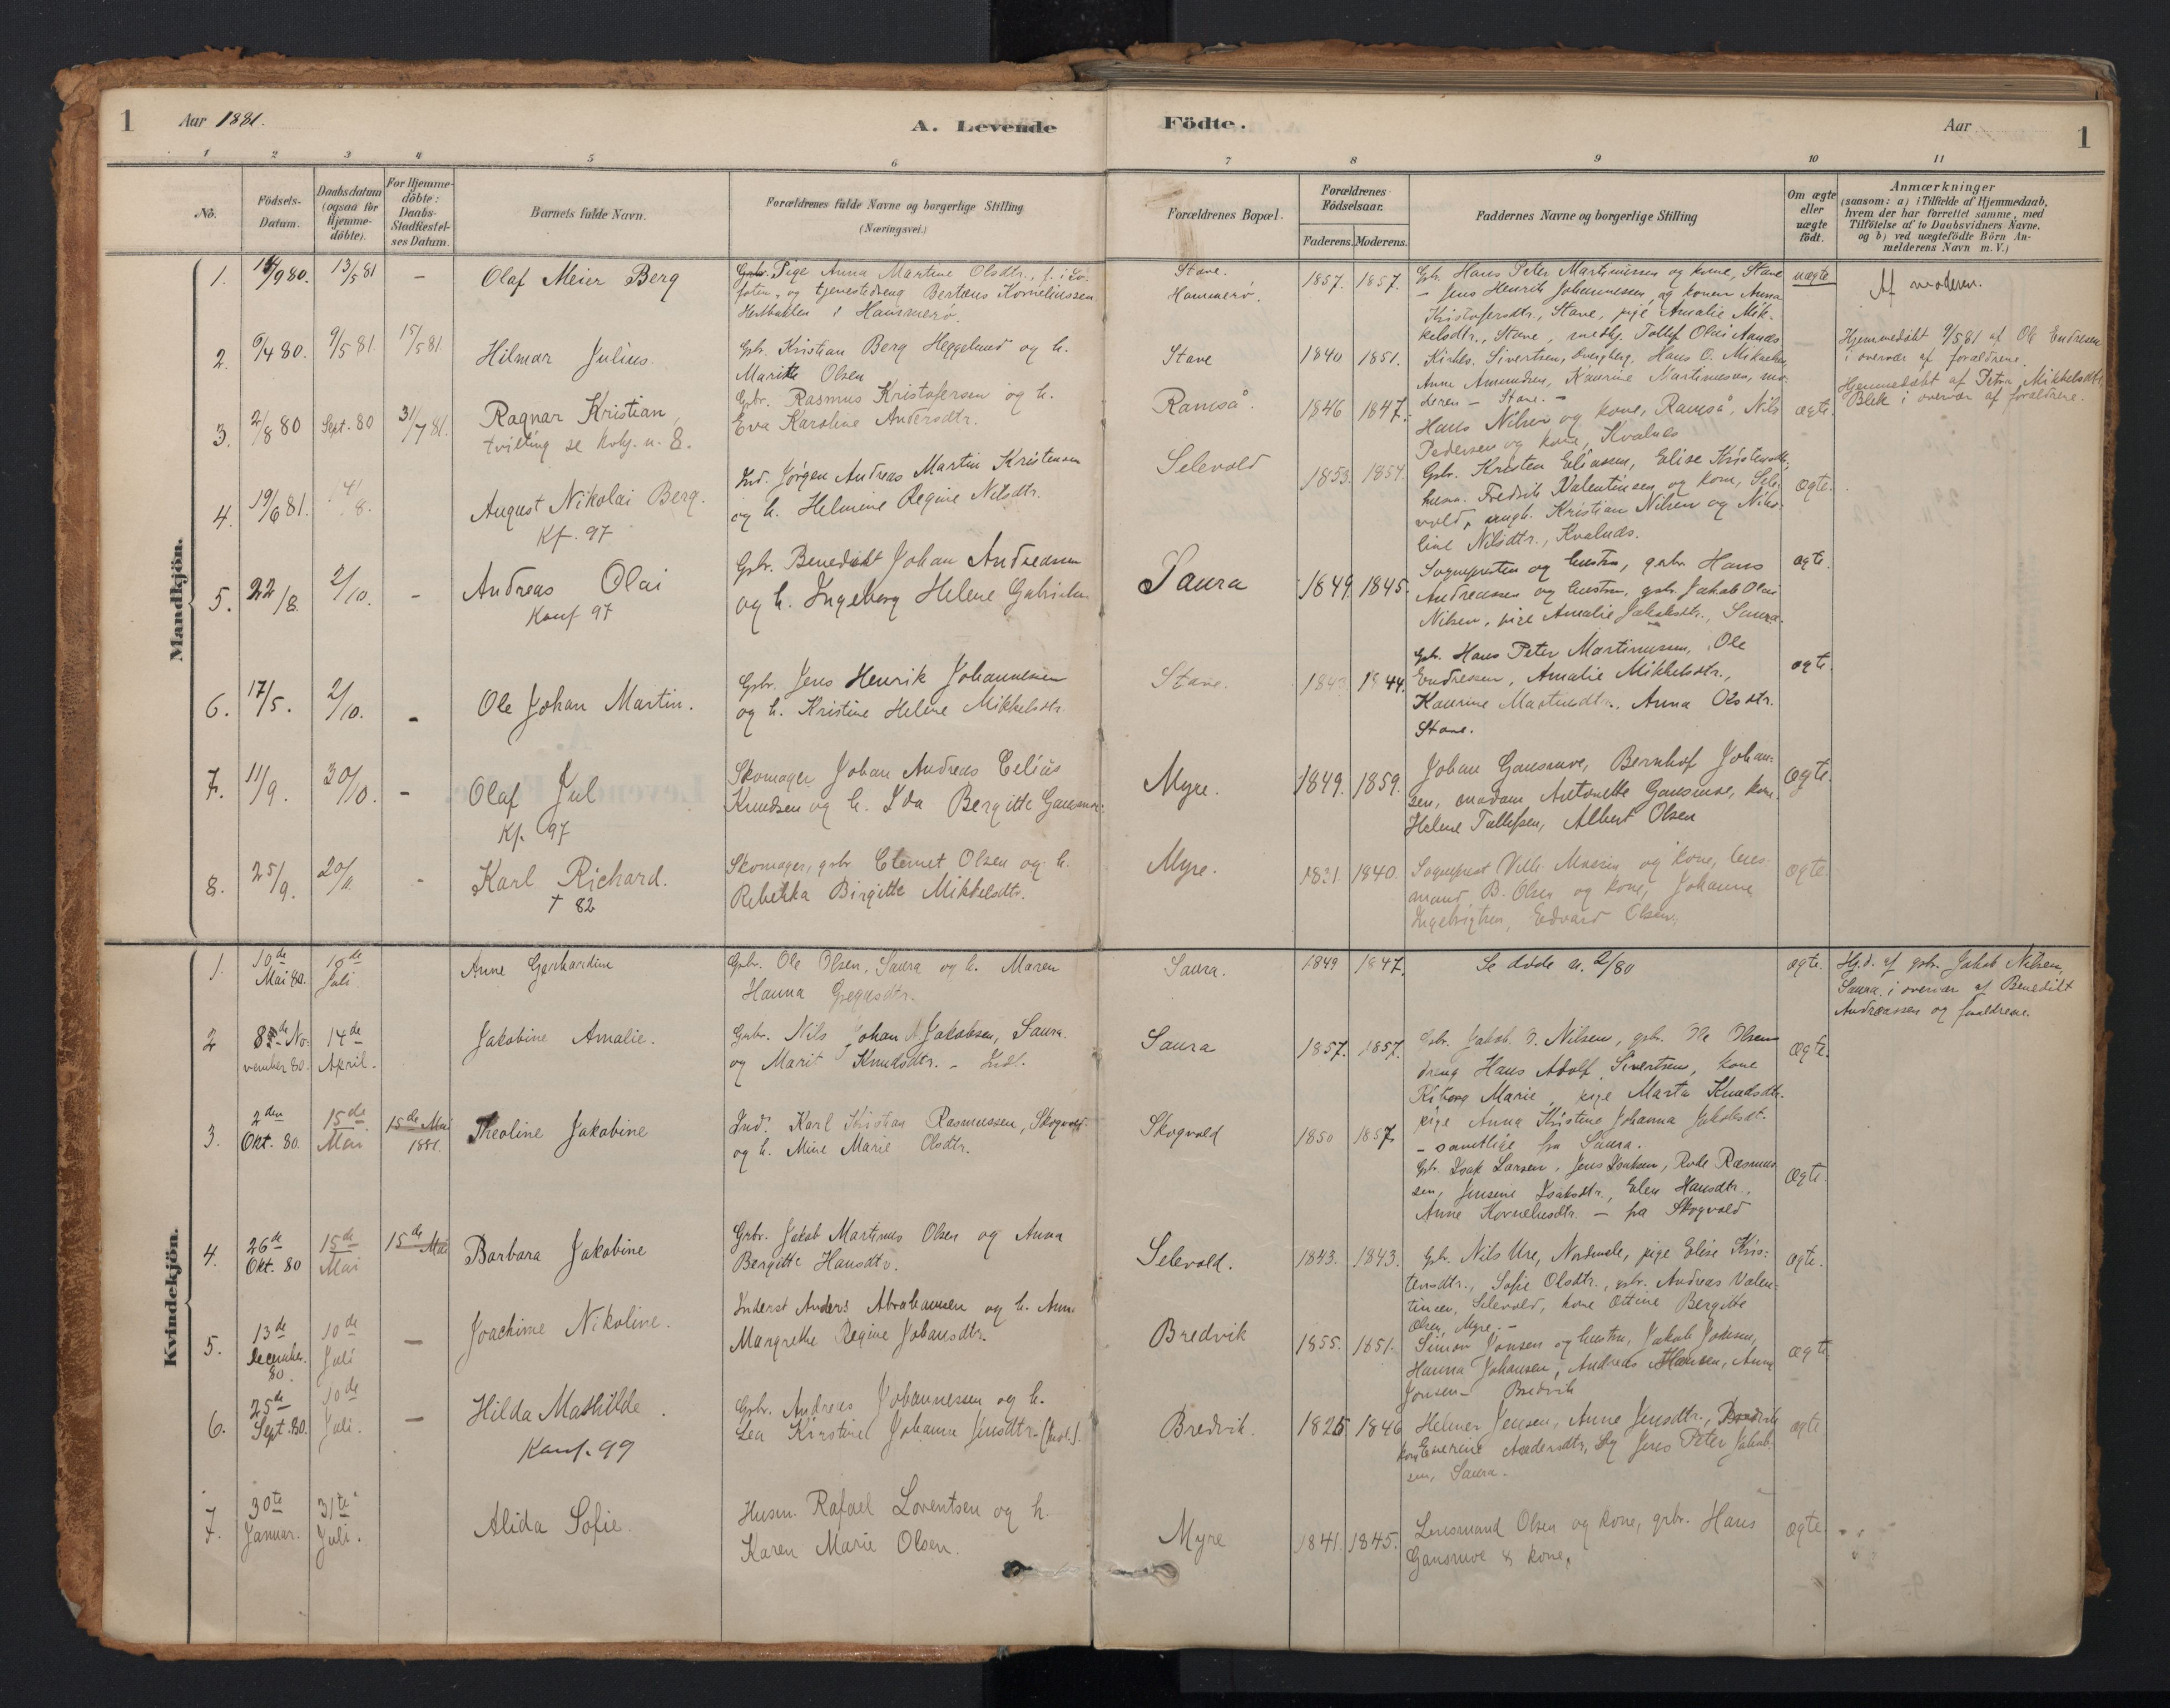 1 Aar 1881. A. Levende Födte. Aar 1
1 2 3 4 5 6 7 8 9 10 11
No.
Födsels-
Datum.
Daabsdatum
(ogsaa for
Hjemme-
döbte).
For Hjemme-
döbte:
Daabs-
Stadfæstel-
ses Datum.
Barnets fulde Navn.
Forældrenes fulde Navne og borgerlige Stilling
(Næringsvei.)
Forældrenes Bopæl.
Forældrenes
Födselsaar.
Faderens. Moderens.
Faddernes Navne og borgerlige Stilling
Om ægte
eller
uægte
födt.
Anmærkninger
(saasom: a) i Tilfælde af Hjemmedaab,
hvem der har forrettet samme, med
Tilföielse af to Daabsvidners Navne.
og b) ved uægtefödte Börn An-
melderens Navn m. V.)
Mandkjön.
1. 14/9 80. 13/5 81 – Olaf Meier Berg
Pige Anna Martine Olsdtr., f. i Lo-
foten, og tjenestedreng Bertæus Korneliussen
i Hammerø.
Stave.
Hammerø.
1857. 1857.
Gbr. Hans Peter Martinussen og kone, Stave
– Jens Henrik Johannessen, og konen Anna
Kristofersdtr., Stave, pige Amalie Mik-
kelsdtr., Stave,
uægte
Af moderen.
2. 6/4 80. 9/5 81. 15/5 81 Hilmar Julius.
Gbr. Kristian Berg Heggelund og h.
Marithe Olsen
Stave 1840 1851.
Sivertsen, Hans O. Mikkelsen
Anne Amundsen, Kaurine Martinussen, mo-
deren – Stave. –
Hjemmedøbt 9/5 81 af Ole Endresen
i overvær af forældrene.
3. 2/8 80 Sept. 80 31/7 81. Ragnar Kristian,
tvilling se kvkj. n. 8.
Gbr. Rasmus Kristofersen og h.
Eva Karoline Andersdtr.
Ramså. 1846 1847.
Hans Nilsen og kone, Ramså, Nils
Pedersen og kone, Kvalnes
ægte.
Hjemmedøbt af Petra Mikkelsdtr.
Blek i overvær af forældrene.
4. 19/6 81. 14/8. August Nikolai Berg.
Kf. 97
Ind. Jörgen Andreas Martin Kristensen
og h. Helmine Regine Nilsdtr.
Selevold 1853. 1857.
Gbr. Kristen Eliasen, Elise Kristensdtr.,
husm. Fredrik Valentinsen og kone, Sele-
vold, ungk. Kristian Nilsen og Niko-
line Nilsdtr., Kvalnes.
ægte.
5. 22/8. 2/10. – Andreas Olai
Konf 97
Gbr. Benedikt Johan Andreassen
og h. Ingeborg Helene Gabrielsen
Saura 1849. 1845.
Sognepresten og hustru, gbr. Hans
Andreassen og hustru, gbr. Jakob Olai
Nilsen, pige Amalie Jakobsdtr., Saura.
ægte.
6. 17/5. 2/10. – Ole Johan Martin.
Gbr. Jens Henrik Johannessen
og h. Kristine Helene Mikkelsdtr.
Stave. 1844.
Gbr. Hans Peter Martinussen, Ole
Endresen, Amalie Mikkelsdtr.,
Kaurine Martinsdtr., Anna Olsdtr.
Stave.
ægte.
7. 11/9. 30/10. – Olaf Jul
Kf. 97
Skomager Johan Andreas Celius
Knudsen og h. Ida Bergitte Gansmoe.
Myre. 1849. 1859.
Johan Gansmoe, Bernhof Johan-
sen, madam Antonette Gansmoe, kone
Helene Tollefsen, Albert Olsen
ægte.
8. 25/9. 20/11. – Karl Richard.
† 82
Skomager, gbr. Clemet Olsen og h.
Rebekka Birgitte Mikkelsdtr.
Myre. 1831. 1840.
Sogneprest og kone, lens-
mand B. Olsen og kone, Johanne
Ingebrigtsen, Edvard Olsen.
ægte.
Kvindekjön.
1. 10de
Mai 80. 10de
Juli
Anne Gerhardine
Gbr. Ole Olsen, Saura og h. Maren
Hanna Gregusdtr.
Saura. 1849 1847.
Se døde n. 2/80
ægte.
Hj.d. af gbr. Jakob Nilsen,
Saura. i overvær af Benedikt
Andreassen og forældrene.
2 8de No-
vember 80. 14de
April.
Jakobine Amalie.
Gbr. Nils Johan A. Jakobsen, Saura.
og Marit Knudsdtr. –
Saura 1857. 1857.
Gbr. Jakob O. Nilsen, gbr. Ole Olsen
dreng Hans Adolf Sivertsen, kone
Marie, pige Marta Knudsdtr.
pige Anna Kristine Johanna Jakobsdt.
– samtlige fra Saura.
ægte.
3. 2den
Okt. 80. 15de
Mai 15de Mai
1881.
Theoline Jakobine
Ind. Karl Kristian Rasmussen, Skogvold
og h. Mine Marie Olsdtr.
Skogvold 1850 1857.
Gbr. Isak Larsen, Jens Isaksen, Rasmus-
sen, Jensine Isaksdtr., Elen Hansdtr.,
Anne Kornelusdtr. – fra Skogvold
ægte.
4. 26de
Okt. 80 15de
Mai 15de Mai
Barbara Jakobine
Gbr. Jakob Martinus Olsen og Anna
Bergitte Hansdtr.
Selevold. 1843. 1843.
Gbr. Nils Ure, Nordmele, pige Elise Kris-
tensdtr., Sofie Olsdtr., gbr. Andreas Valen-
tinsen, Selevold, kone Ottine Bergitte
Olsen, Myre. –
ægte.
5. 13de
December.
80. 10de
Juli –
Joachime Nikoline.
Inderst Anders Abrahamsen og h. Anne
Margrethe Regine Johansdtr.
Bredvik 1855. 1851.
Simon Jonsen og hustru, Jakob Johnsen,
Hanna Johansen, Andreas Hansen, Anne
Jonsen – Bredvik
ægte.
6. 25de
Sept. 80. 10de
Juli. –
Hilda Mathilde.
Konf. 99
Gbr. Andreas Johannessen og h.
Lea Kirstine Johanna Jensdtr.
Bredvik. 1825 1846
Helmer Jensen, Anne Jensdtr., Bredvik
kone Everine Andersdtr. og Jens Peter Jakob-
sen, Saura.
ægte
7. 30te
Januar. 31te
Juli.
Alida Sofie.
Husm. Rafael Lorentsen og h.
Karen Marie Olsen.
Myre 1841. 1845.
Lensmand Olsen og kone, gbr. Hans
Gansmoe & kone.
ægte